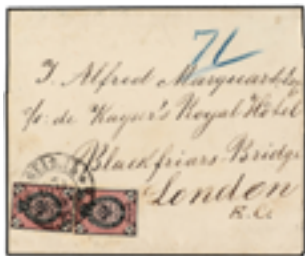 7L
J. Alfred Marquart Esq
c/o: de Kayser's Royal Hotel
Blackfriars-Bridge
London
E.C.